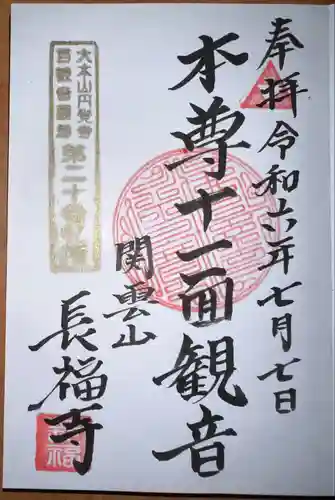 奉拝 令和六年七月七日
本尊十一面観音
関雲山
長福寺
大本山円覚寺
百観音霊場
第二十番札所